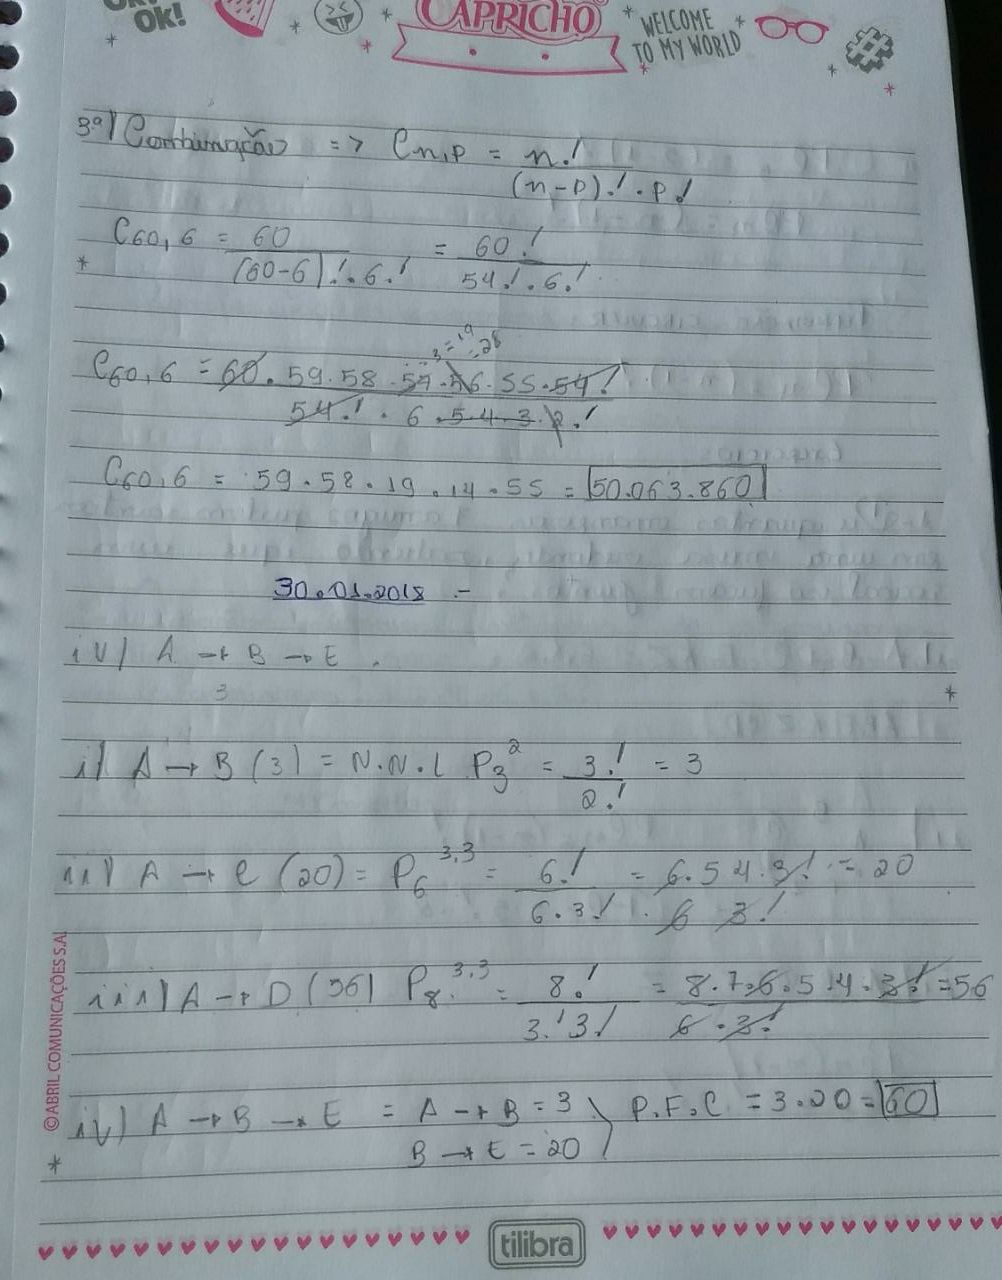 Ok!
CAPRICHO
WELCOME
TO MY WORLD
3ª) Combinação => Cn,p = n!
(n-p)! . p!
C60,6 = 60 = 60!
(60-6)! . 6! 54! . 6!
3 = 19
= 28
C60,6 = 60 . 59 . 58 . 57 . 56 . 55 . 54!
54! . 6 . 5 . 4 . 3 . 2 . !
C60,6 = 59 . 58 . 19 . 14 . 55 = 50.063.860
30.01.2018 -
iv) A → B → E .
3
i) A → B (3) = N.N.L P3² = 3! = 3
2!
ii) A → C (20) = P6 3,3 = 6! = 6.5 4.3! = 20
6.3! 6 3!
iii) A → D (56) P8 3,3 = 8! = 8.7.6.5.4.3! = 56
3! 3! 6.3!
iv) A → B → E = A → B = 3 ) P.F.C = 3.20 = 60
B → E = 20
©ABRIL COMUNICAÇÕES S.A.
tilibra